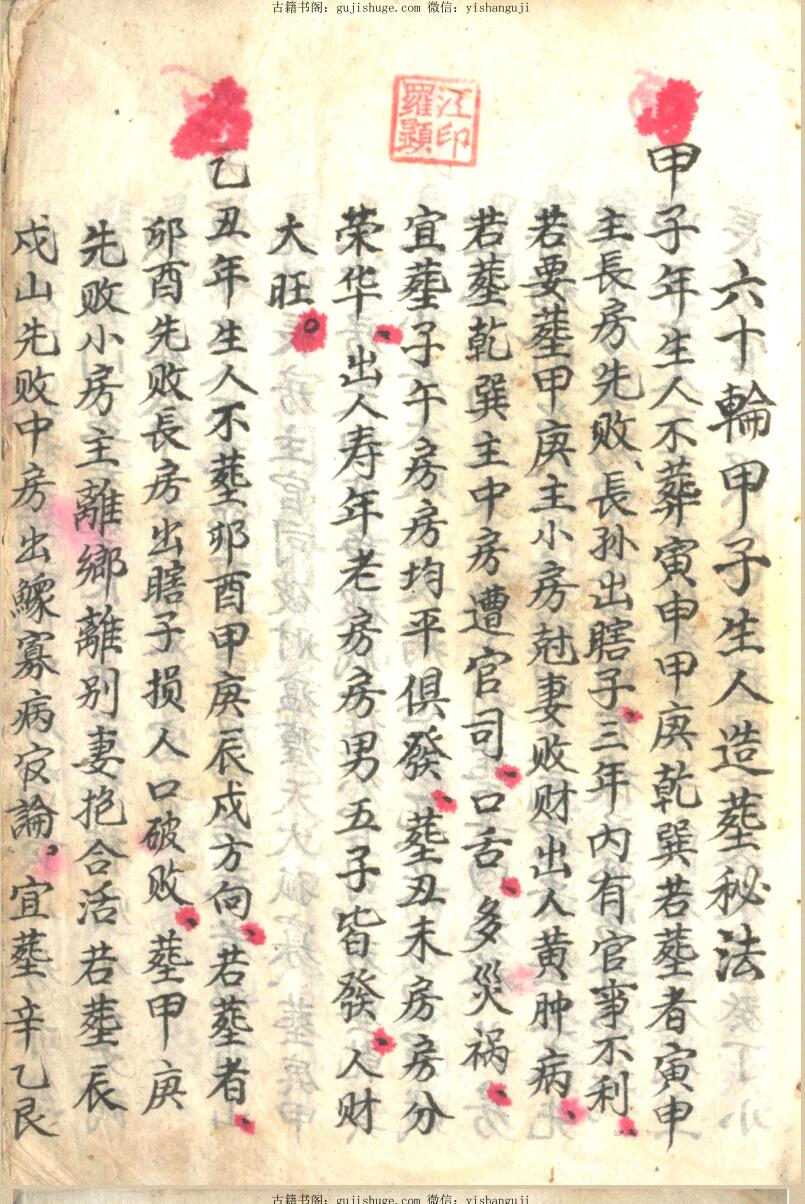 古籍书阁：gujishuge.com 微信：yishanguji
江印
羅顯
六十輪甲子生人造塟秘法
甲子年生人不葬寅申甲庚乾巽若塟者寅申
主長房先敗、長孙出瞎子、三年内有官事不利、
若要塟甲庚主小房尅妻败财出人黄肿病、
若塟乾巽主中房遭官司、口舌、多災祸、
宜塟子午房房均平俱發、塟丑未房房分
荣华、出人寿年老房房男五子皆發、人财
大旺。
乙丑年生人不塟卯酉甲庚辰戍方向、若塟者、
卯酉先败長房出瞎子损人口破败、塟甲庚
先败小房主離鄉離别妻抱合活若塟辰
戍山先败中房出鰥寡病㝎論。宜塟辛乙艮
古籍书阁：gujishuge.com 微信：yishanguji